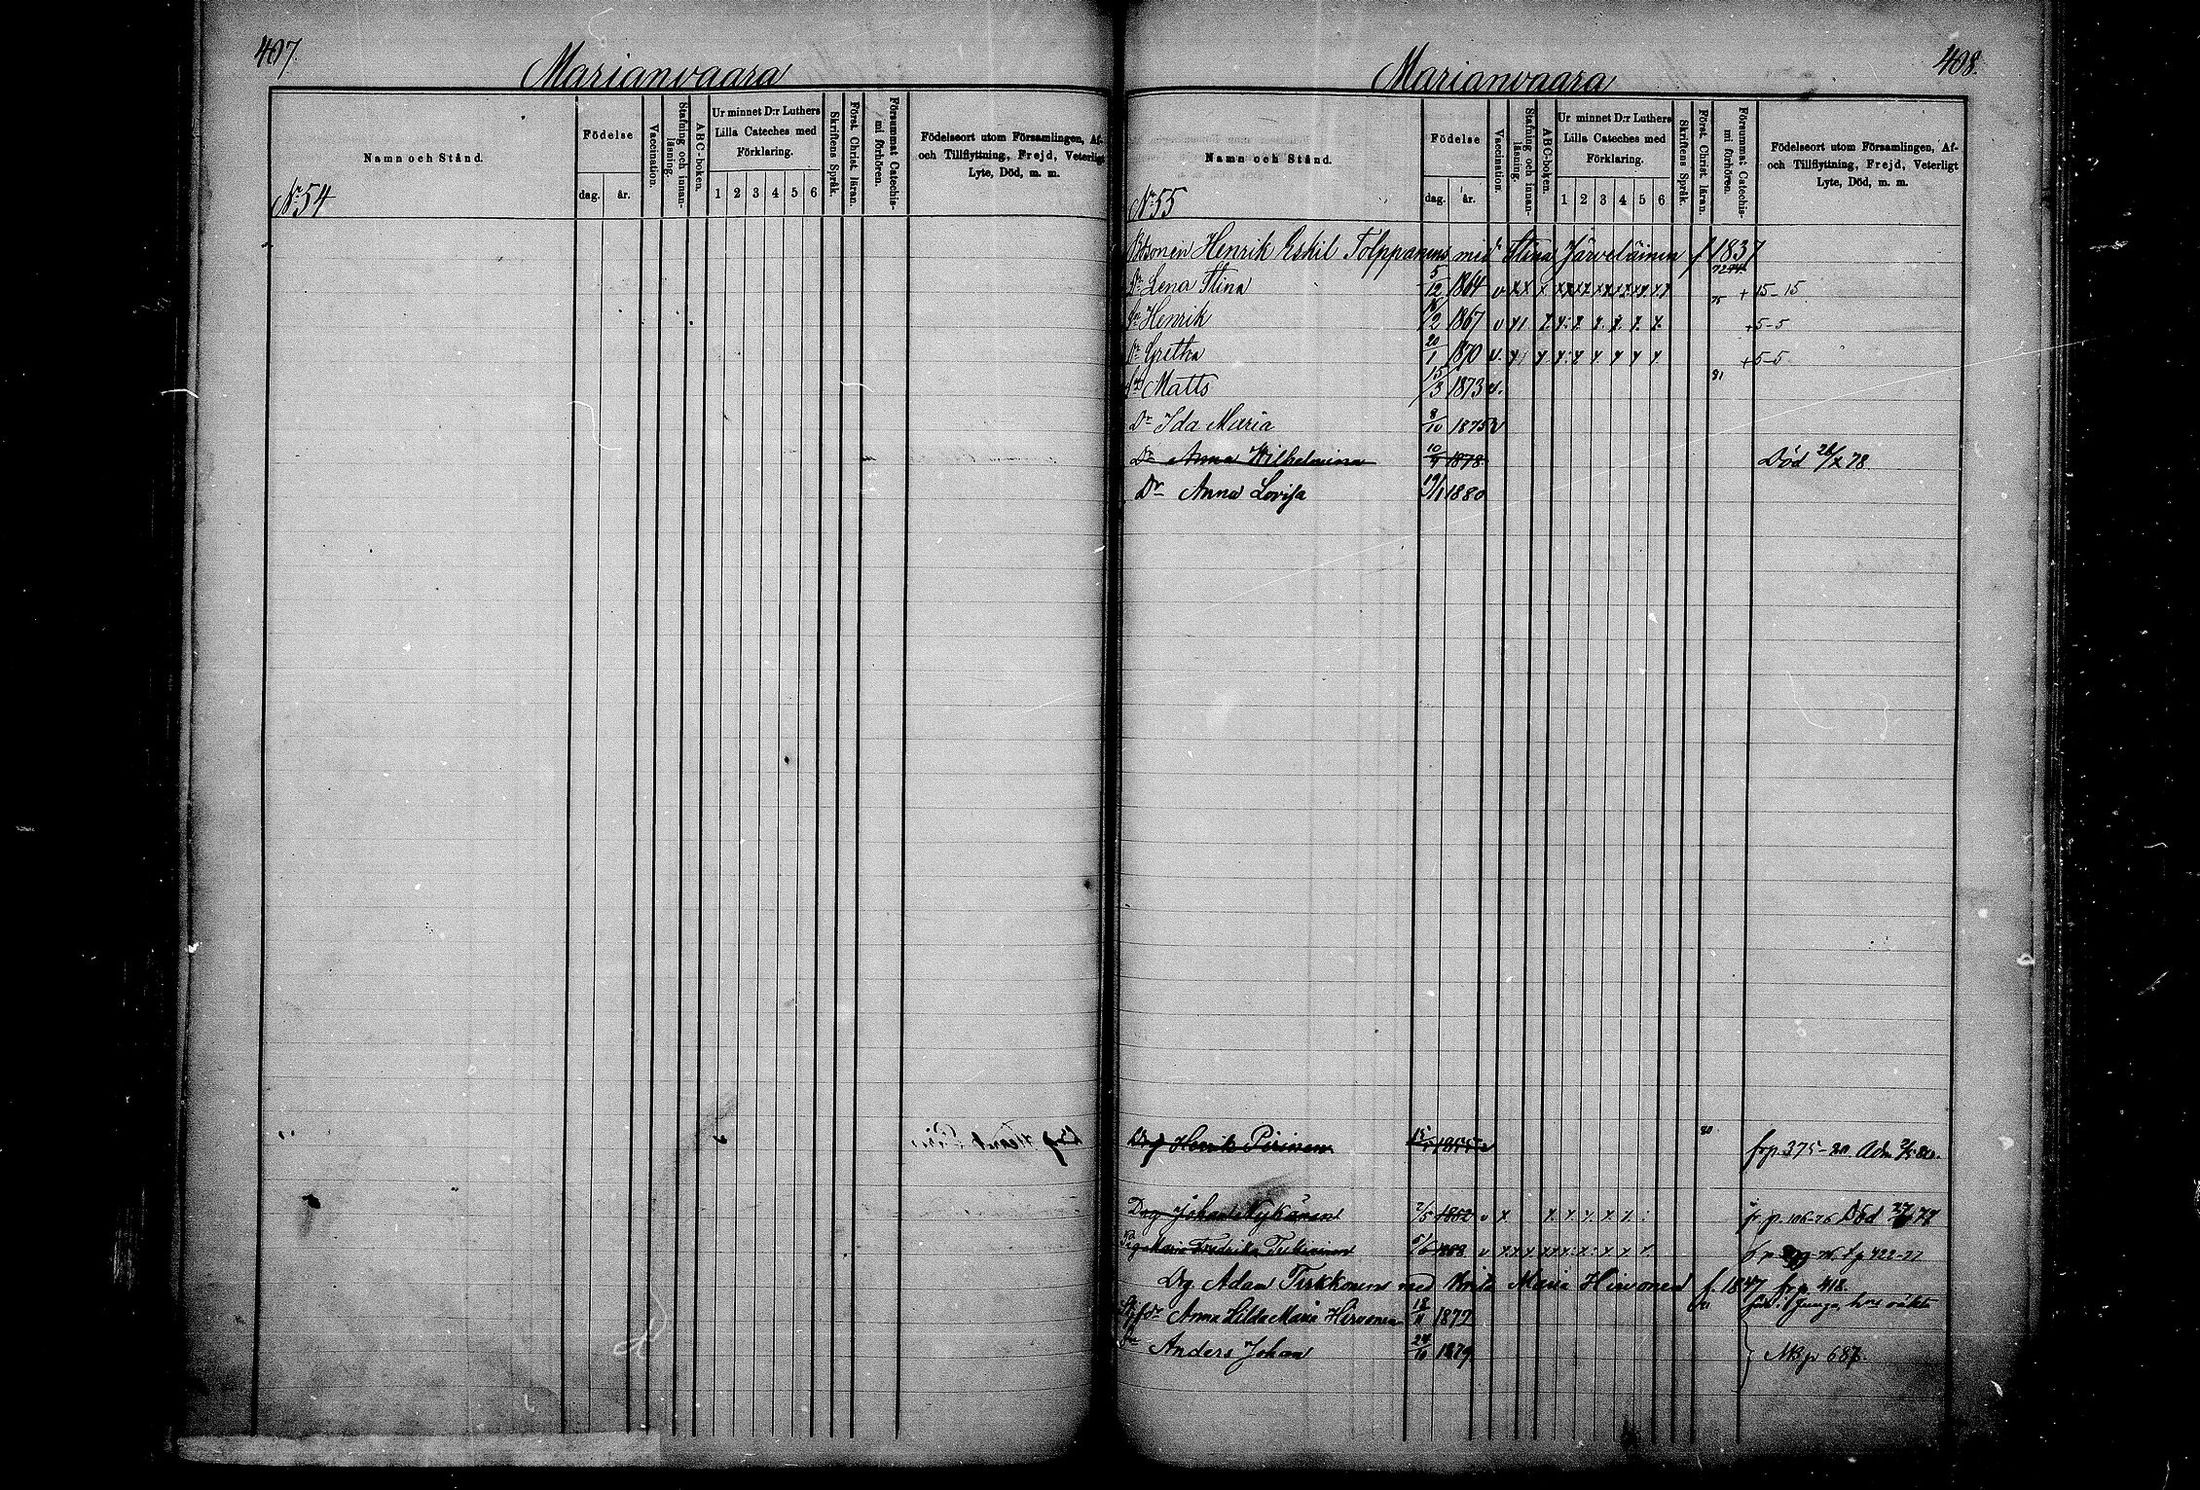 407.
Marianvaara
Namn och Stånd.
Födelse
dag.
år.
Vaccination.
Stafning och innan-
läsning.
ABC-boken.
Ur minnet D:r Luthers
Lilla Cateches med
Förklaring.
1 2 3 4 5 6
Skriftens Språk.
Först. Christ. läran.
Försummat Catechis-
mi förhören.
Födelseort utom Församlingen, Af-
och Tillflyttning, Frejd, Veterligt
Lyte, Död, m. m.
No 54
408.
Marianvaara
Namn och Stånd.
Födelse
dag.
år.
Vaccination.
Stafning och innan-
läsning.
ABC-boken.
Ur minnet D:r Luthers
Lilla Cateches med
Förklaring.
1 2 3 4 5 6
Skriftens Språk.
Först. Christ. läran.
Försummat Catechis-
mi förhören.
Födelseort utom Församlingen, Af-
och Tillflyttning, Frejd, Veterligt
Lyte, Död, m. m.
No 55
Henrik Eskil Tolppanens med Stina Järveläinen f 1837
Dr Lena Stina 5/12 1864 v + 15-15
Sn Henrik 1867 v +5-5
Dr Gretha 20/1 1870 v. +5-5
Sn Matts 15/3 1873 v.
Dr Ida Maria 8/10 1875 v
Dr Anna Wilhelmina 1878 Död 78
Dr Anna Lovisa 19/1 1880
Drg Henrik Pirinen 1855 v frp 375-80.
Drg Johan Nykänen 2/5 1852 v fr p. 106-76 Död 27 77
Pig Maria Fredrika 1858 v 422-77
Drg Adam Tirkkonen med Maria Hirvonen f. 1847 frp 418.
Anna Hilda Maria Hirvonen 18/11 1872
Sn Anders Johan 24/10 1879 p 687.